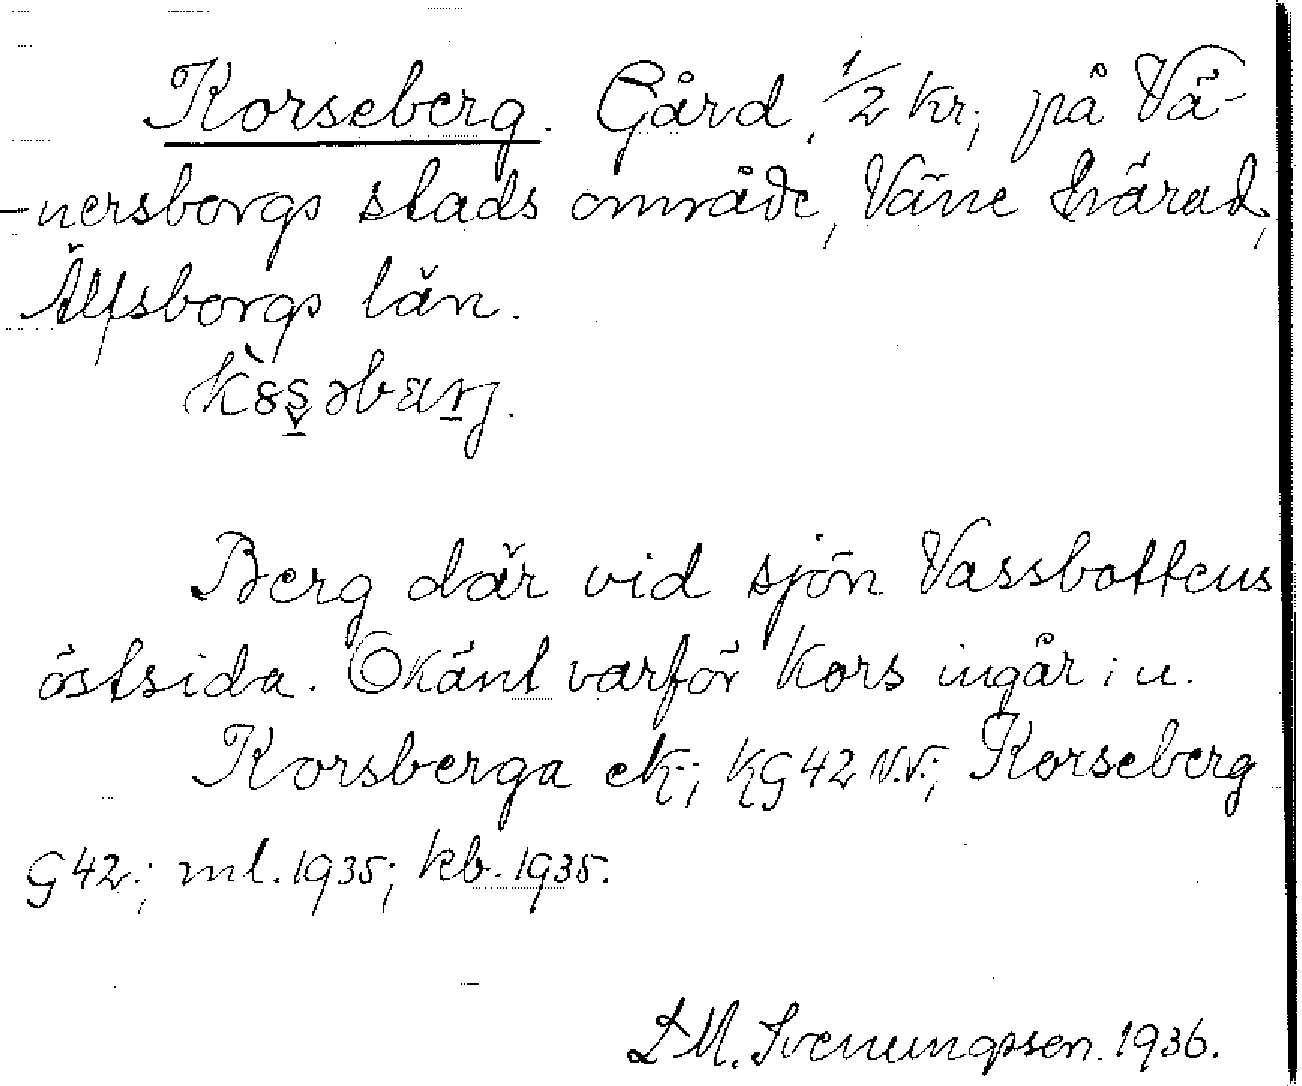 Korseberg. Gård, 1/2 kr; på Vä-
-nersborgs stads område, Väne härad,
Älfsborgs län.
Berg där vid sjön Vassbottens
östsida. Okänt varför Kors ingår i n.
Korsberga ek.; KG42 N.V.; Korseberg
G42.; ml. 1935; kb. 1935.
L M. Svenungsson. 1936.